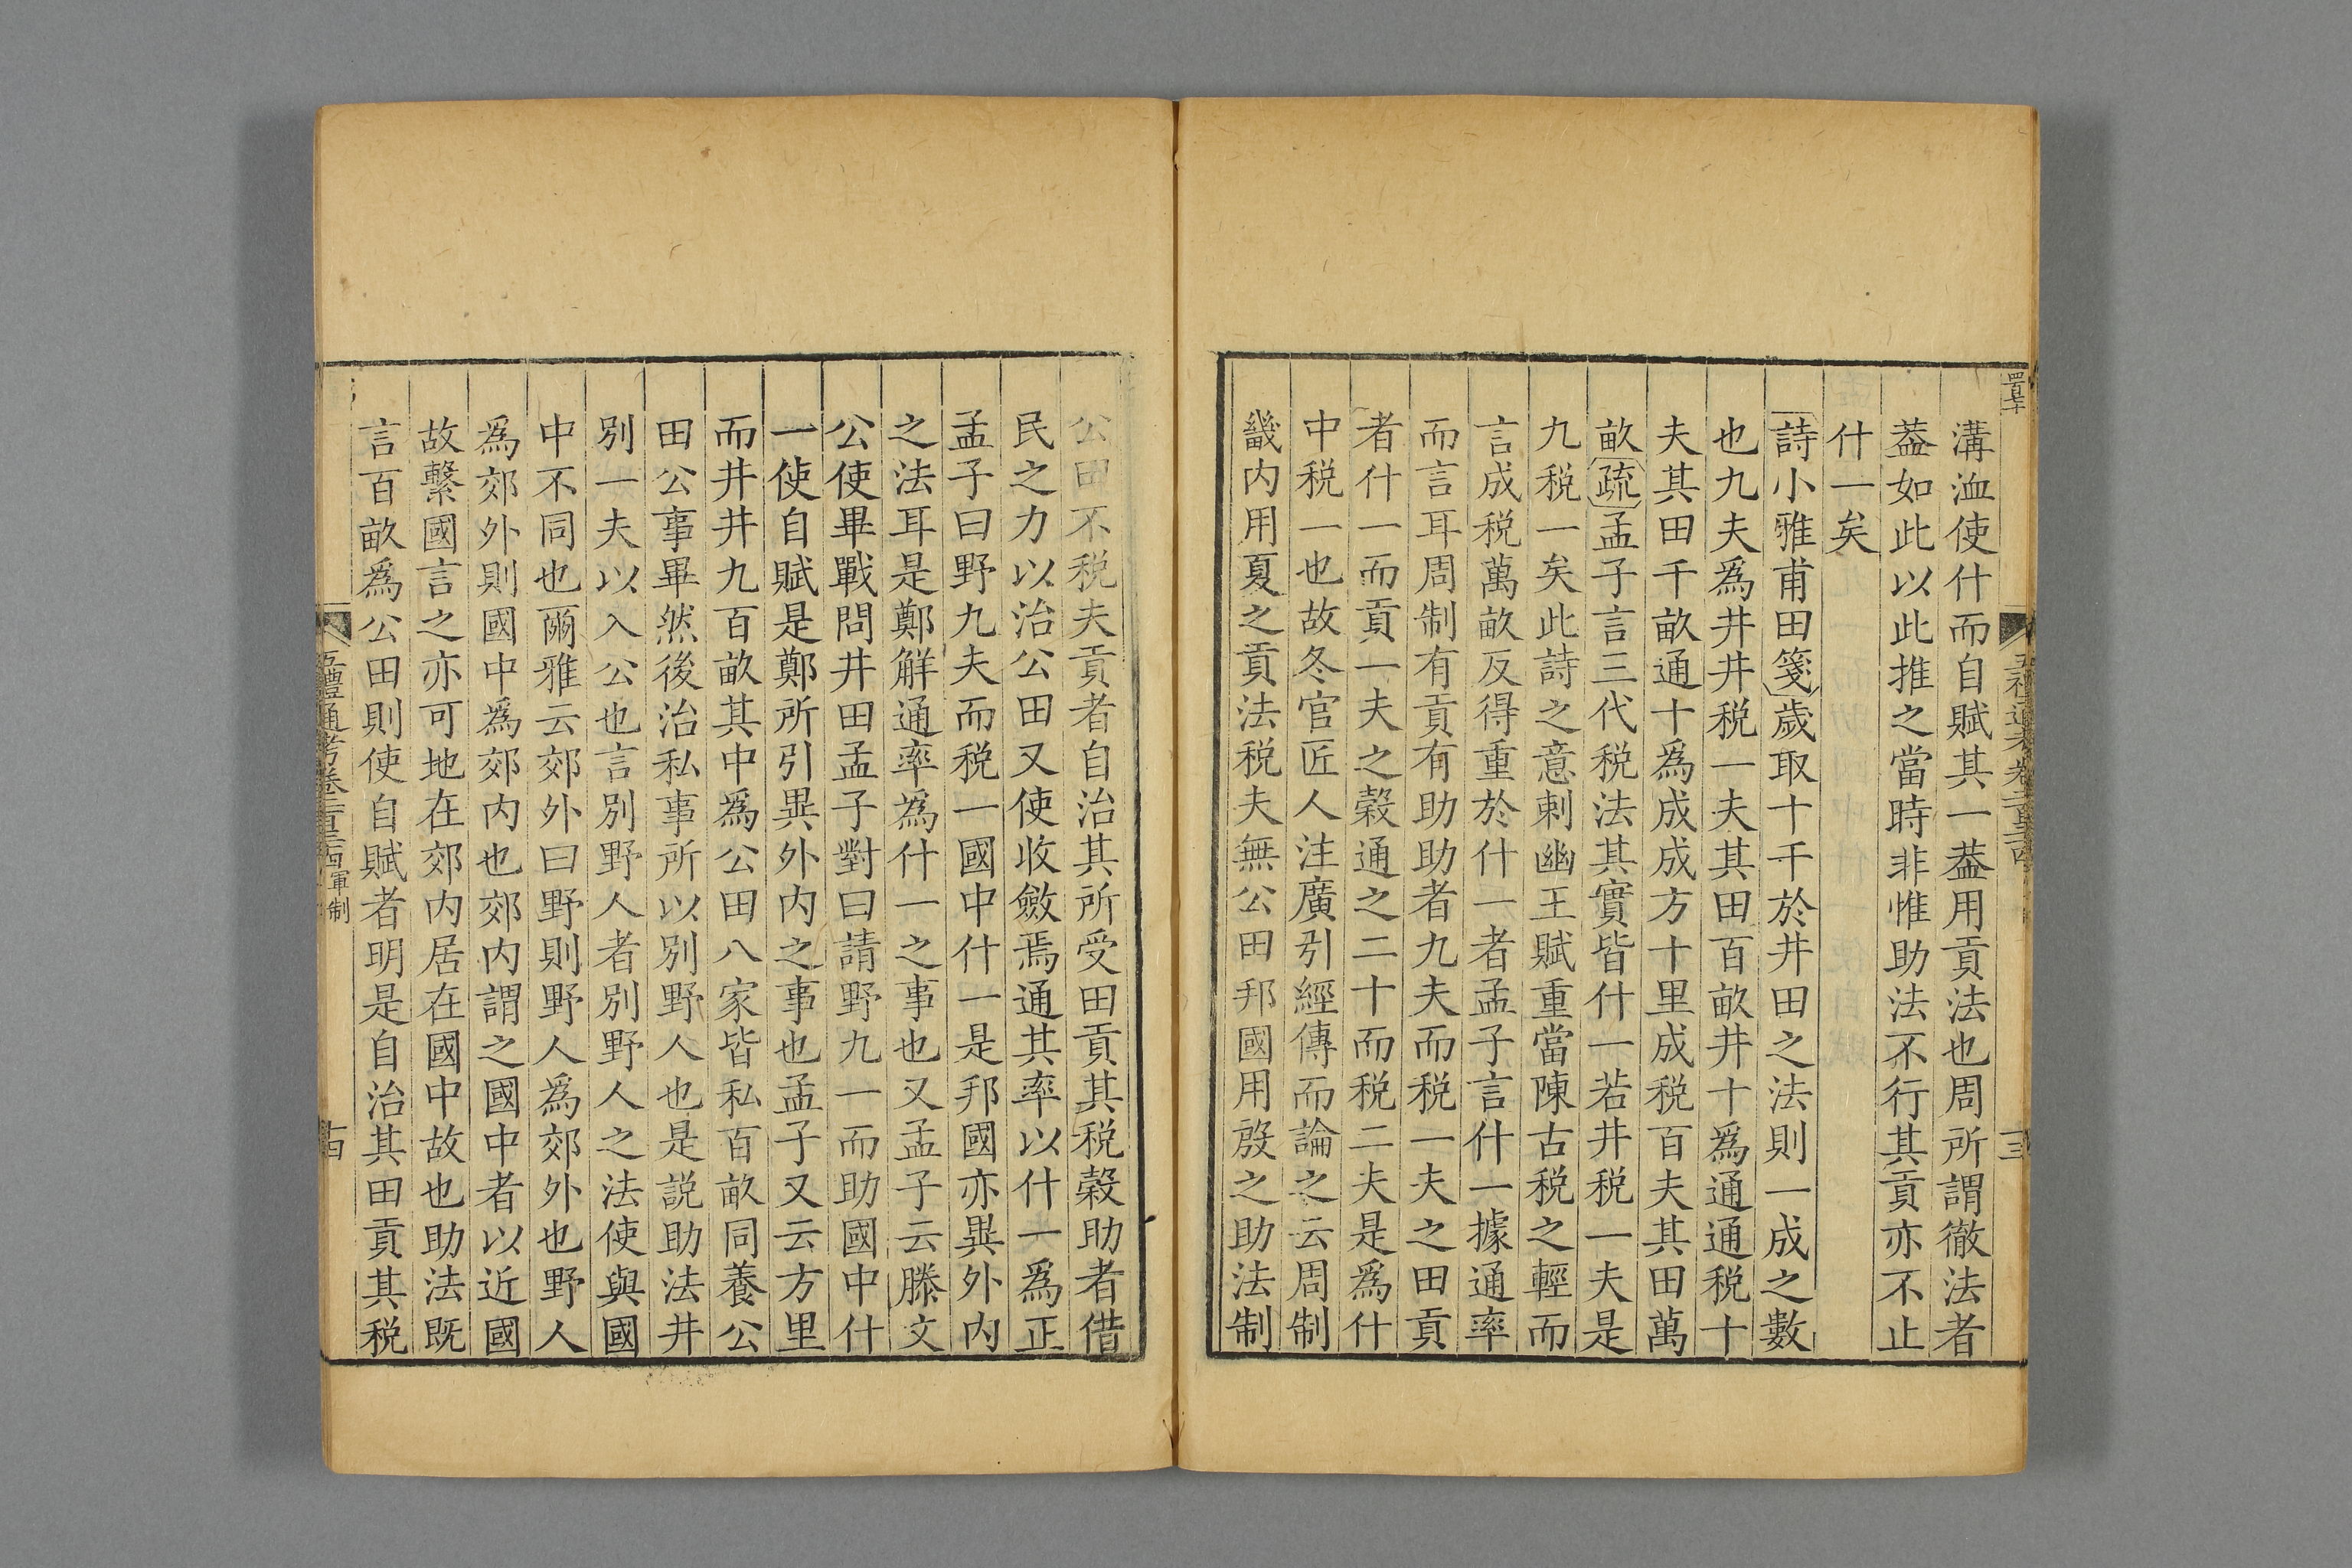 溝洫使什而自賦其一葢用貢法也周所謂徹法者
葢如此以此推之當時非惟助法不行其貢亦不止
什一矣
詩小雅甫田箋歲取十千於井田之法則一成之數
也九夫爲井井税一夫其田百畝井十爲通通税十
夫其田千畝通十爲成成方十里成税百夫其田萬
畝疏孟子言三代税法其實皆什一若井税一夫是
九税一矣此詩之意刺幽王賦重當陳古税之輕而
言成税萬畝反得重於什一者孟子言什一據通率
而言耳周制有貢有助助者九夫而税一夫之田貢
者什一而貢一夫之穀通之二十而税二夫是爲什
中税一也故冬官匠人注廣引經傳而論之云周制
畿内用夏之貢法税夫無公田邦國用殷之助法制
公田不税夫貢者自治其所受田貢其税穀助者借
民之力以治公田又使收斂焉通其率以什一爲正
孟子曰野九夫而税一國中什一是邦國亦異外内
之法耳是鄭解通率爲什一之事也又孟子云滕文
公使畢戰問井田孟子對曰請野九一而助國中什
一使自賦是鄭所引異外内之事也孟子又云方里
而井井九百畝其中爲公田八家皆私百畝同養公
田公事畢然後治私事所以別野人也是説助法井
別一夫以入公也言別野人者別野人之法使與國
中不同也爾雅云郊外曰野則野人爲郊外也野人
爲郊外則國中爲郊内也郊内謂之國中者以近國
故繫國言之亦可地在郊内居在國中故也助法既
言百畝爲公田則使自賦者明是自治其田貢其税
五禮通考卷二百三十四 軍制